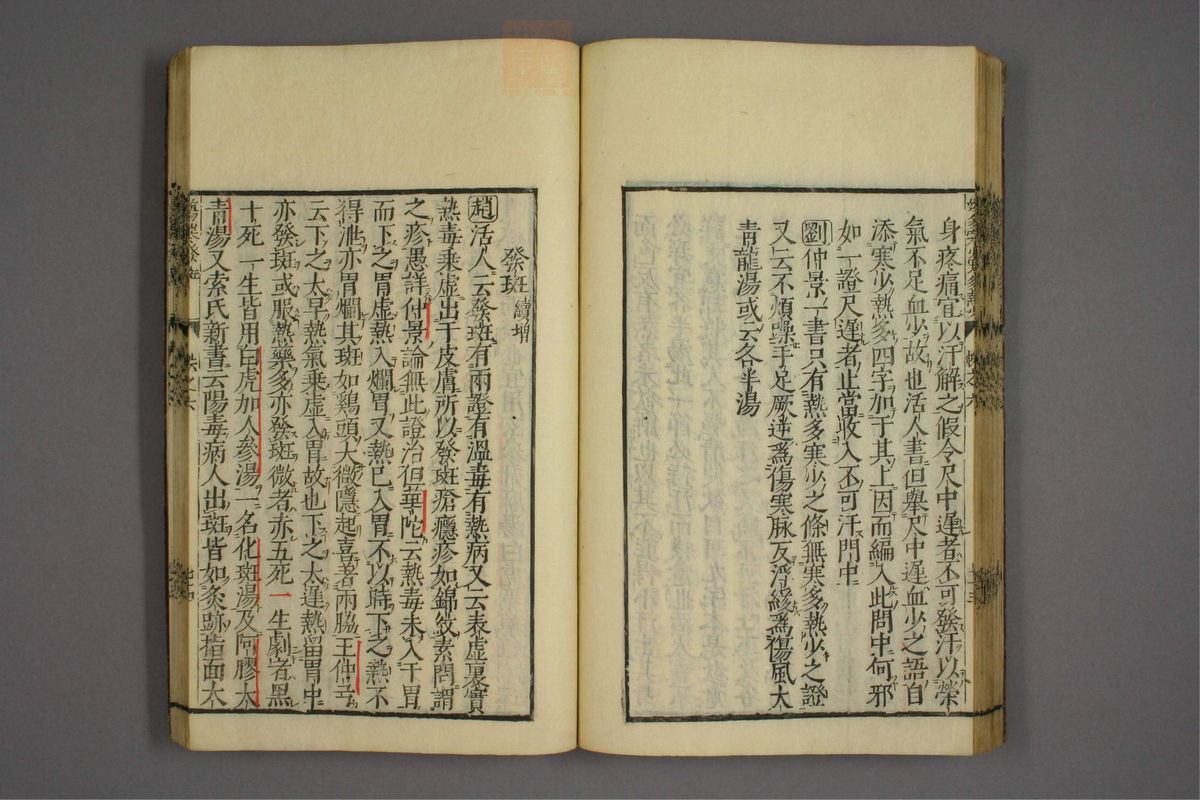 身疼痛宜以汗解之假令尺中遲者不可發汗以榮
氣不足血少故也活人書但舉尺中遲血少之語自
添寒少熱多四字加于其上因而編入此問中何邪
如一證尺遲者止當收入不可汗門中
劉仲景一書只有熱多寒少之條無寒多熱少之證
又云不煩躁手足厥逆爲傷寒脉反浮緩爲傷風大
青龍湯或云各半湯
發斑續增
趙活人云發斑有兩證有溫毒有熱病又云表虛裏實
熱毒乘虛出于皮膚所以發斑瘡癮疹如錦紋素問謂
之疹愚詳仲景論無此證治但華陀云熱毒未入于胃
而下之胃虛熱入爛胃又熱已入胃不以時下之熱不
得泄亦胃爛其斑如鷄頭大微隱起喜著兩脇王仲弓
云下之太早熱氣乘虛入胃故也下之太遲熱留胃中
亦發斑或服熱藥多亦發斑微者赤五死一生劇者黑
十死一生皆用白虎加人參湯一名化斑湯及阿膠大
青湯又索氏新書云陽毒病人出斑皆如灸跡指面大